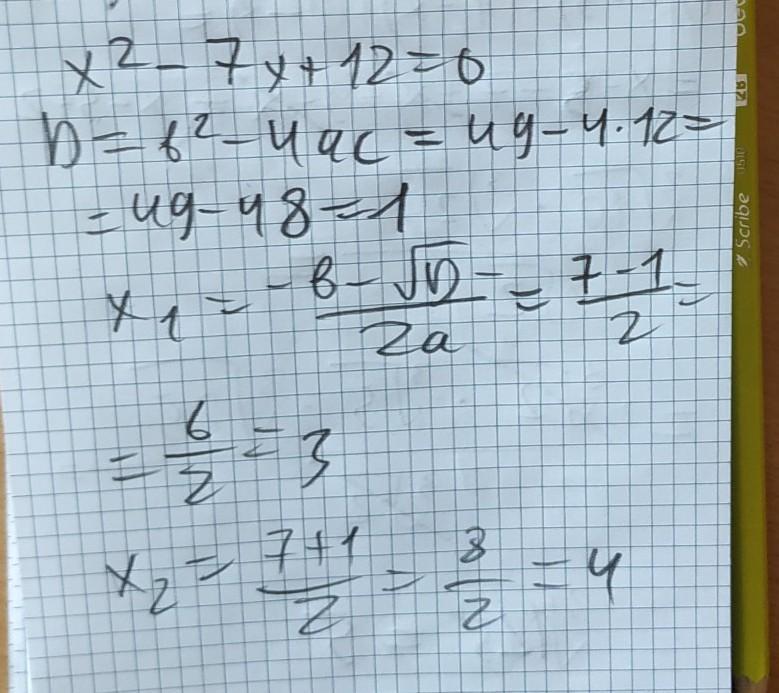 x² - 7x + 12 = 0
D = b² - 4ac = 49 - 4·12 =
= 49 - 48 = 1
x₁ = (-b - √D) / 2a = (7 - 1) / 2 =
= 6/2 = 3
x₂ = (7 + 1) / 2 = 8/2 = 4
Scribe
2B